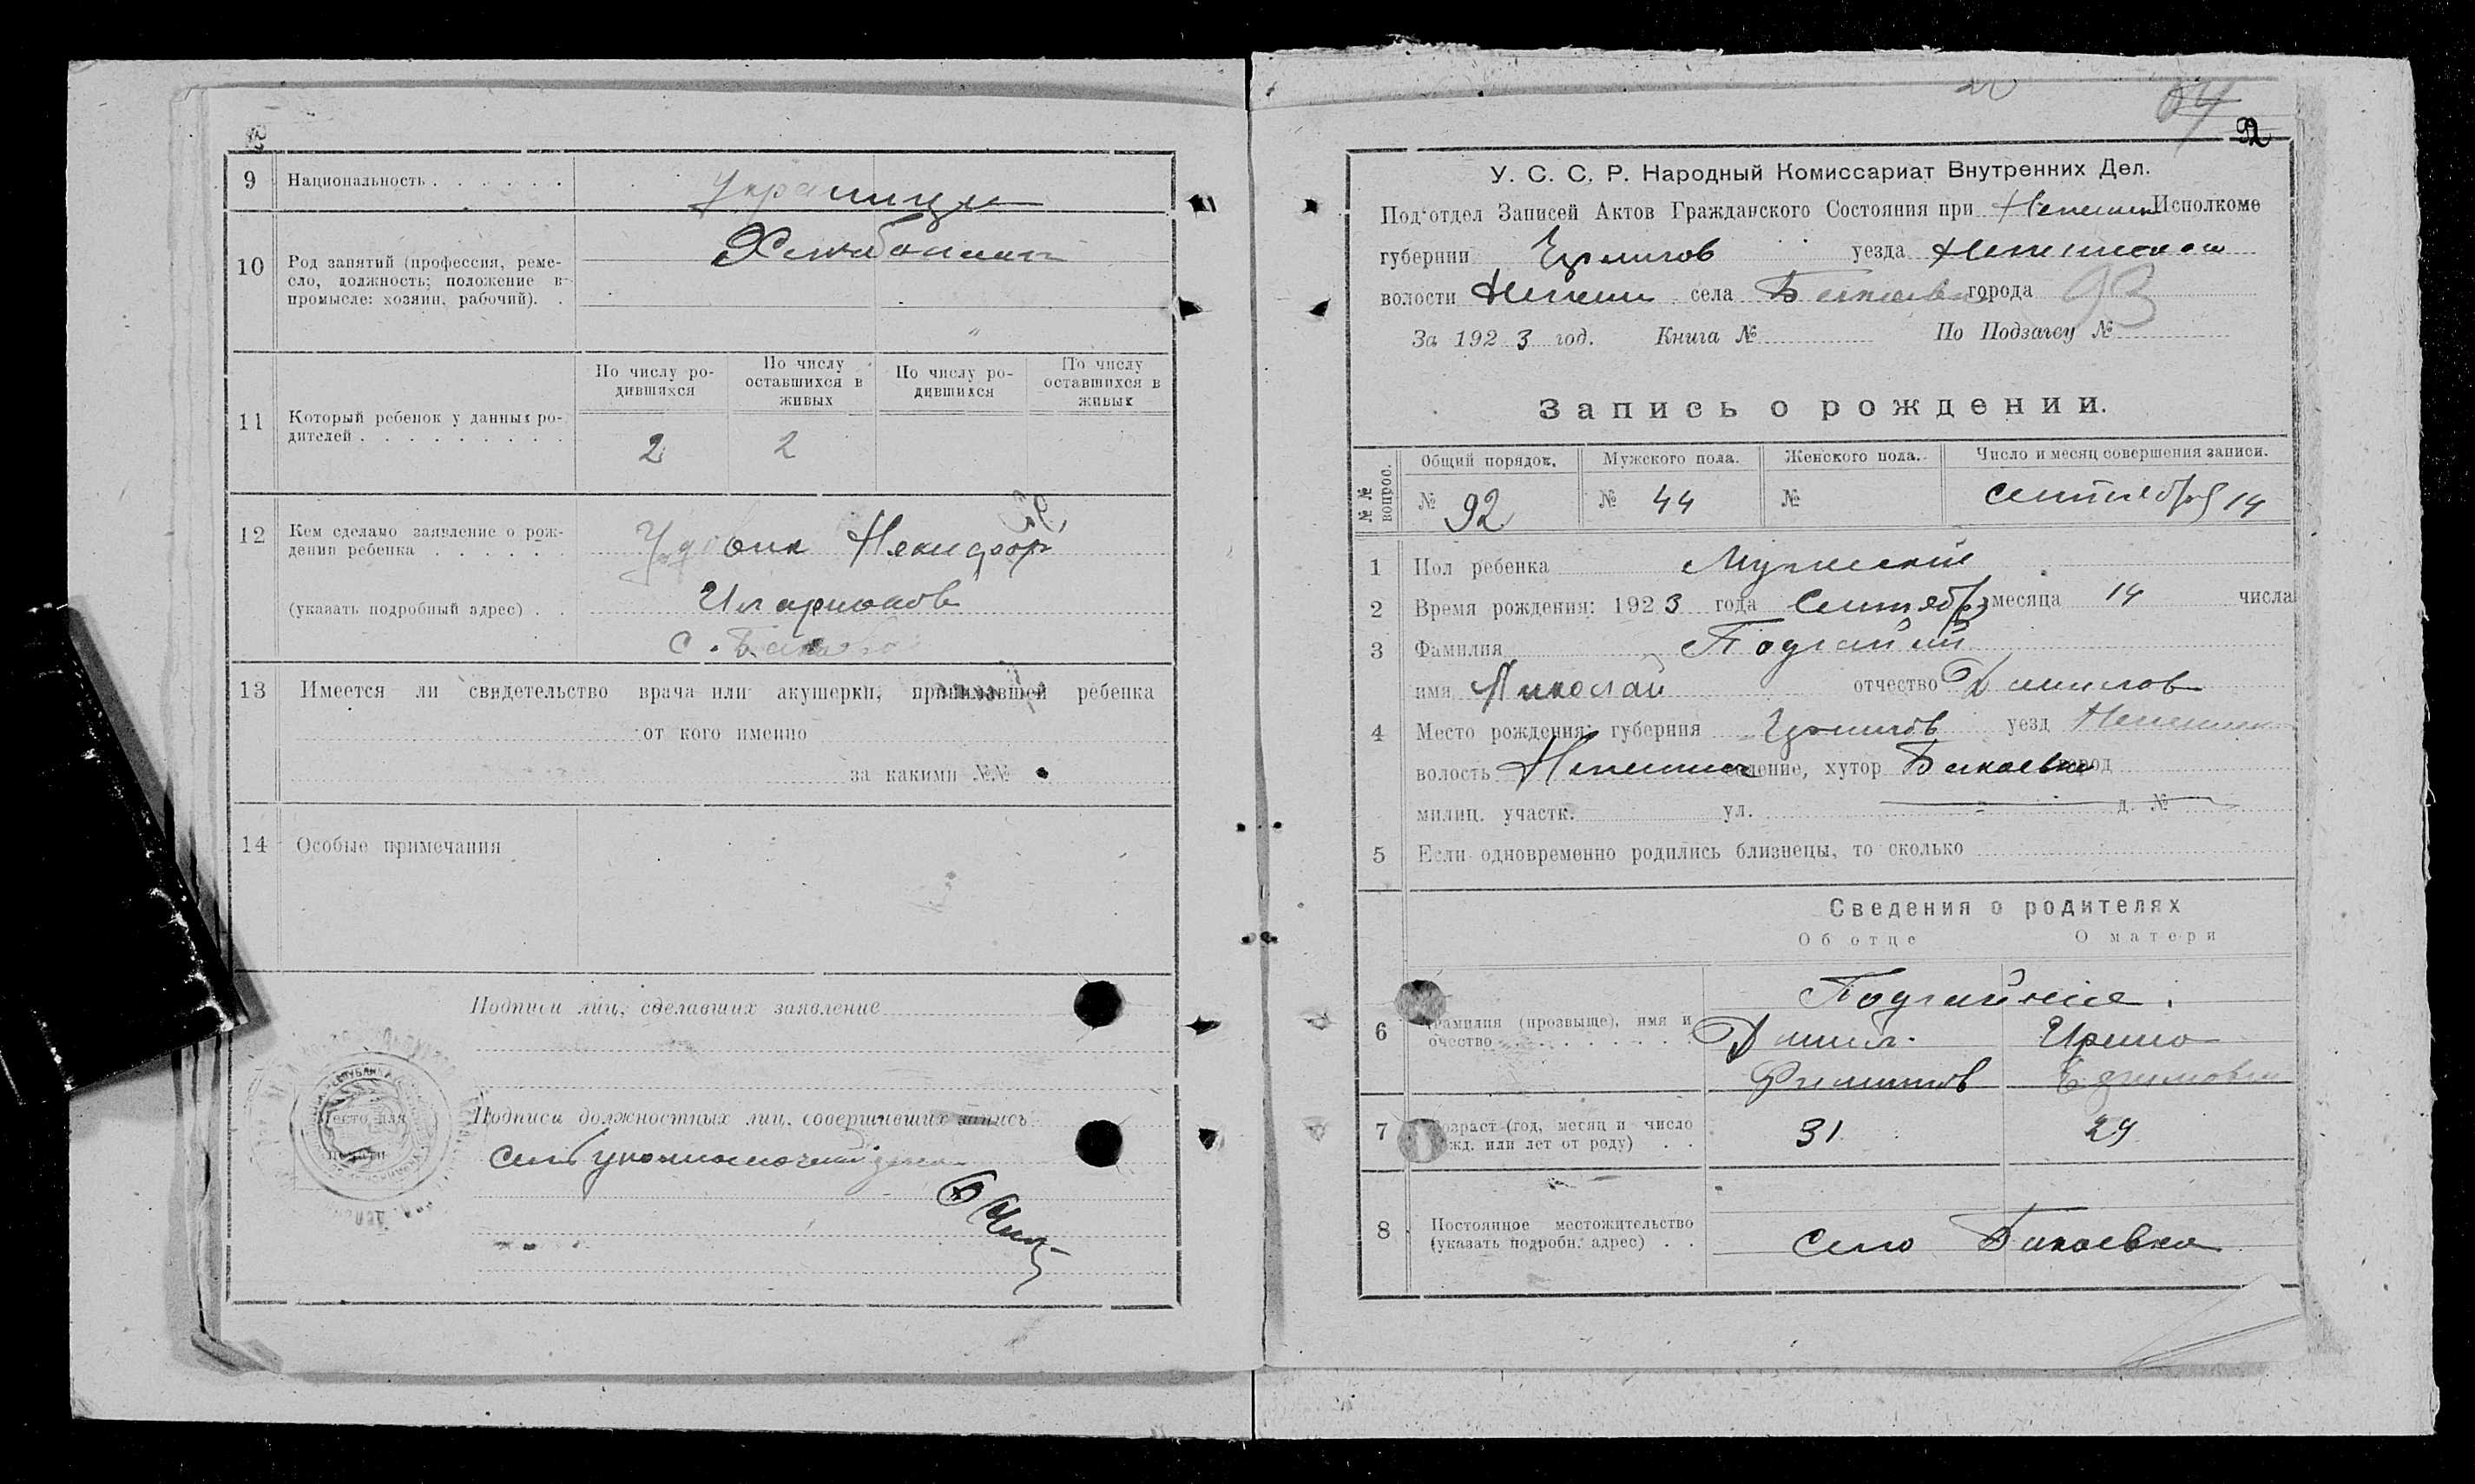 9 Национальность
Украинци
10 Род занятий (профессия, реме-
сло, должность; положение в
промысле: хозяин, рабочий).
11 Который ребенок у данных ро-
дителей
По числу ро-
дившихся
По числу
оставшихся в
живых
По числу ро-
дившихся
По числу
оставшихся в
живых
2 2
12 Кем сделано заявление о рож-
дении ребенка
Удовик Никифор
(указать подробный адрес)
Иларионов
с.
13 Имеется ли свидетельство врача или акушерки, принимавшей ребенка
от кого именно
за какими №№
14 Особые примечания
Подписи лиц, сделавших заявление
Место для
печати
Подписи должностных лиц, совершивших запись
92
У. С. С. Р. Народный Комиссариат Внутренних Дел.
Под'отдел Записей Актов Гражданского Состояния при Нежин Исполкоме
губернии Чернигов уезда Нежинского
волости Нежин села города 93
За 1923 год. Книга № По Подзагсу №
Запись о рождении.
№№ вопрос.
Общий порядок. Мужского пола. Женского пола. Число и месяц совершения записи.
№ 92 № 44 № сентября 14
1 Пол ребенка Мужский
2 Время рождения: 1923 года Сентябр месяца 14 числа
3 Фамилия Подгайний
имя Николай отчество Данилов
4 Место рождения: губерния Чернигов уезд Нежин
волость Нежинск селение, хутор город
милиц. участк. ул. д. №
5 Если одновременно родились близнецы, то сколько
Сведения о родителях
Об отце О матери
6 Фамилия (прозвыще), имя и
очество
Подгайние
Данил Ирина
Филипов Ефимовна
7 Возраст (год, месяц и число
рожд. или лет от роду)
31 29
8 Постоянное местожительство
(указать подробн. адрес)
Село